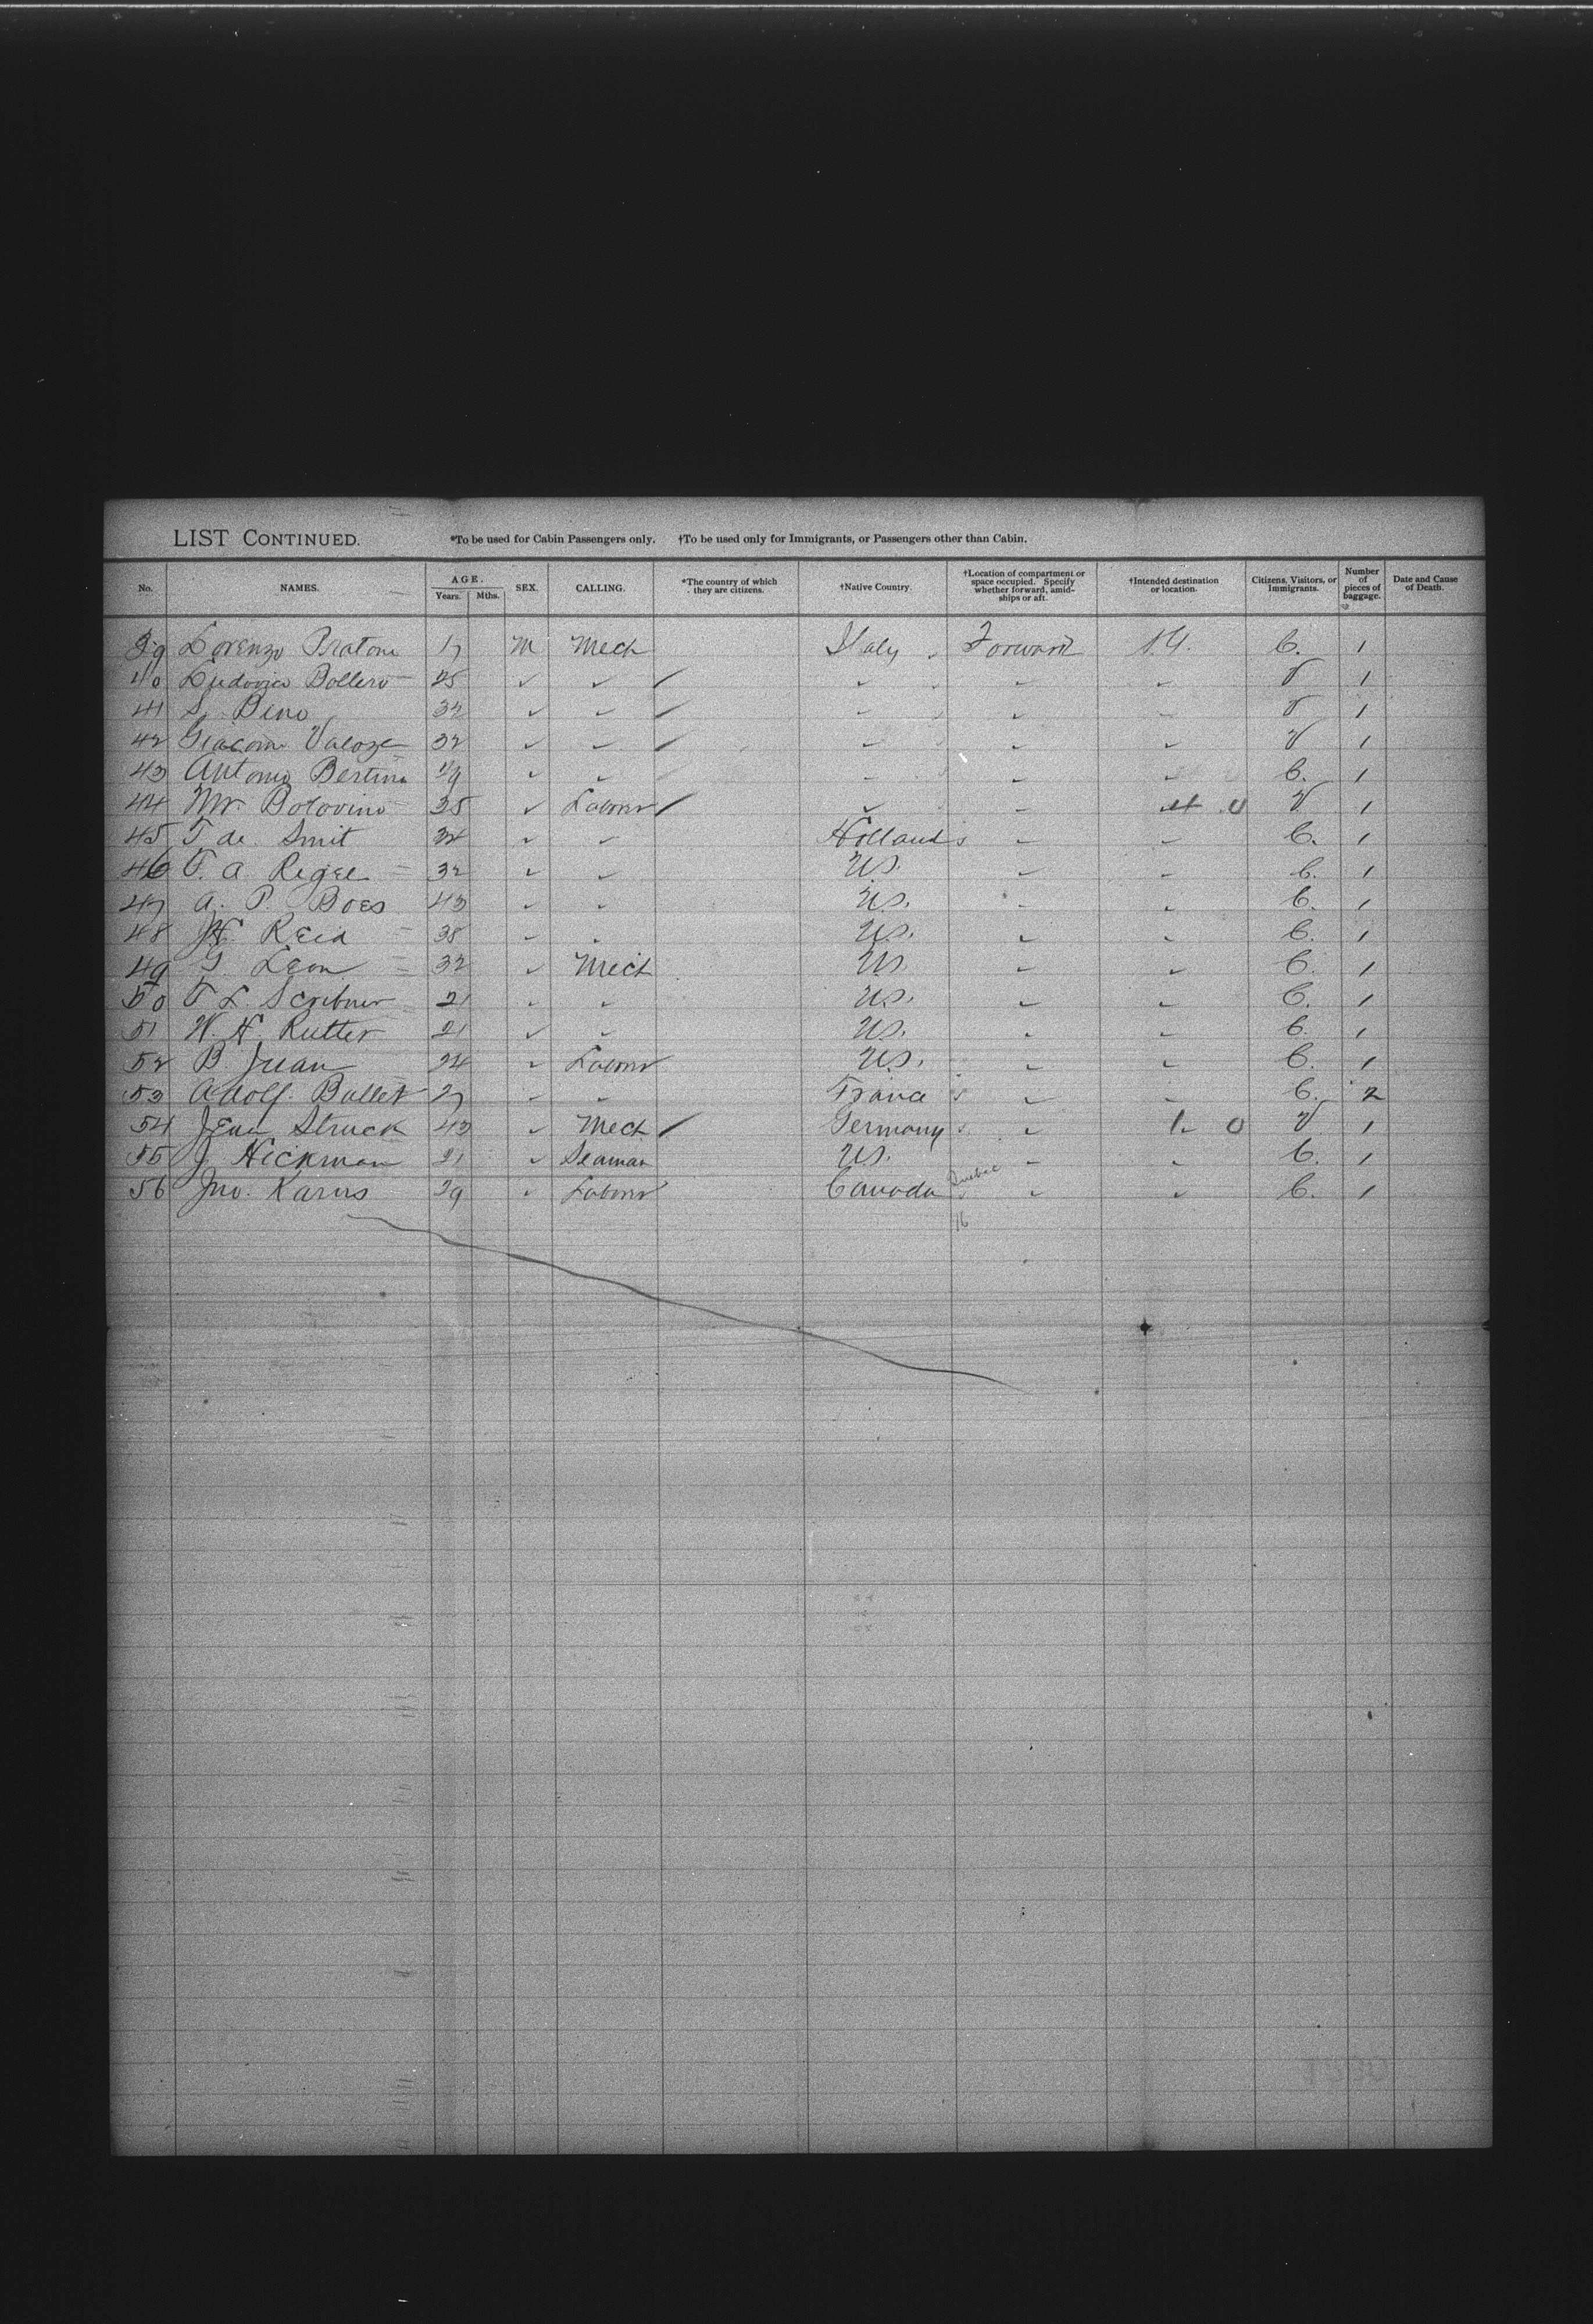 LIST CONTINUED. *To be used for Cabin Passengers only. †To be used only for Immigrants, or Passengers other than Cabin.
No. NAMES. AGE. Years. Mths. SEX. CALLING. *The country of which they are citizens. †Native Country. †Location of compartment or space occupied. Specify whether forward, amidships or aft. †Intended destination or location. Citizens, Visitors, or Immigrants. Number of pieces of baggage. Date and Cause of Death.
39 Lorenzo Pratoni 17 M Mech Italy Forward C. 1
40 Ludovico Bollero 25 ✓ ✓ ✓ ✓ ✓ V 1
41 S. Bino 32 ✓ ✓ ✓ ✓ V 1
42 Giacomo 32 ✓ ✓ ✓ ✓ ✓ V 1
43 Antonio Bertino ✓ ✓ ✓ ✓ C. 1
44 Mr. Bolovino 35 ✓ Labour ✓ 4 0 V 1
45 T de Smit ✓ ✓ Holland C. 1
46 T. A Rigel 32 ✓ ✓ U.S. C. 1
47 A. P. Boes 43 ✓ ✓ U.S. C. 1
48 Reid 38 U.S. ✓ ✓ C. 1
49 G. Leon 32 ✓ Mech U.S. C. 1
50 T L. Scribner 21 ✓ ✓ U.S. C. 1
51 W. H. Rutter 21 ✓ ✓ U.S. C. 1
52 B. Juan 24 ✓ Labour U.S. C. 1
53 Adolf. Ballet 27 ✓ ✓ France C. 2
54 Struck 43 ✓ Mech Germany ✓ 1 0 V 1
55 J. Hickman 21 ✓ Seaman U.S. C. 1
56 Jno. Karns 29 ✓ Labour Canada Quebec ✓ ✓ C. 1
16